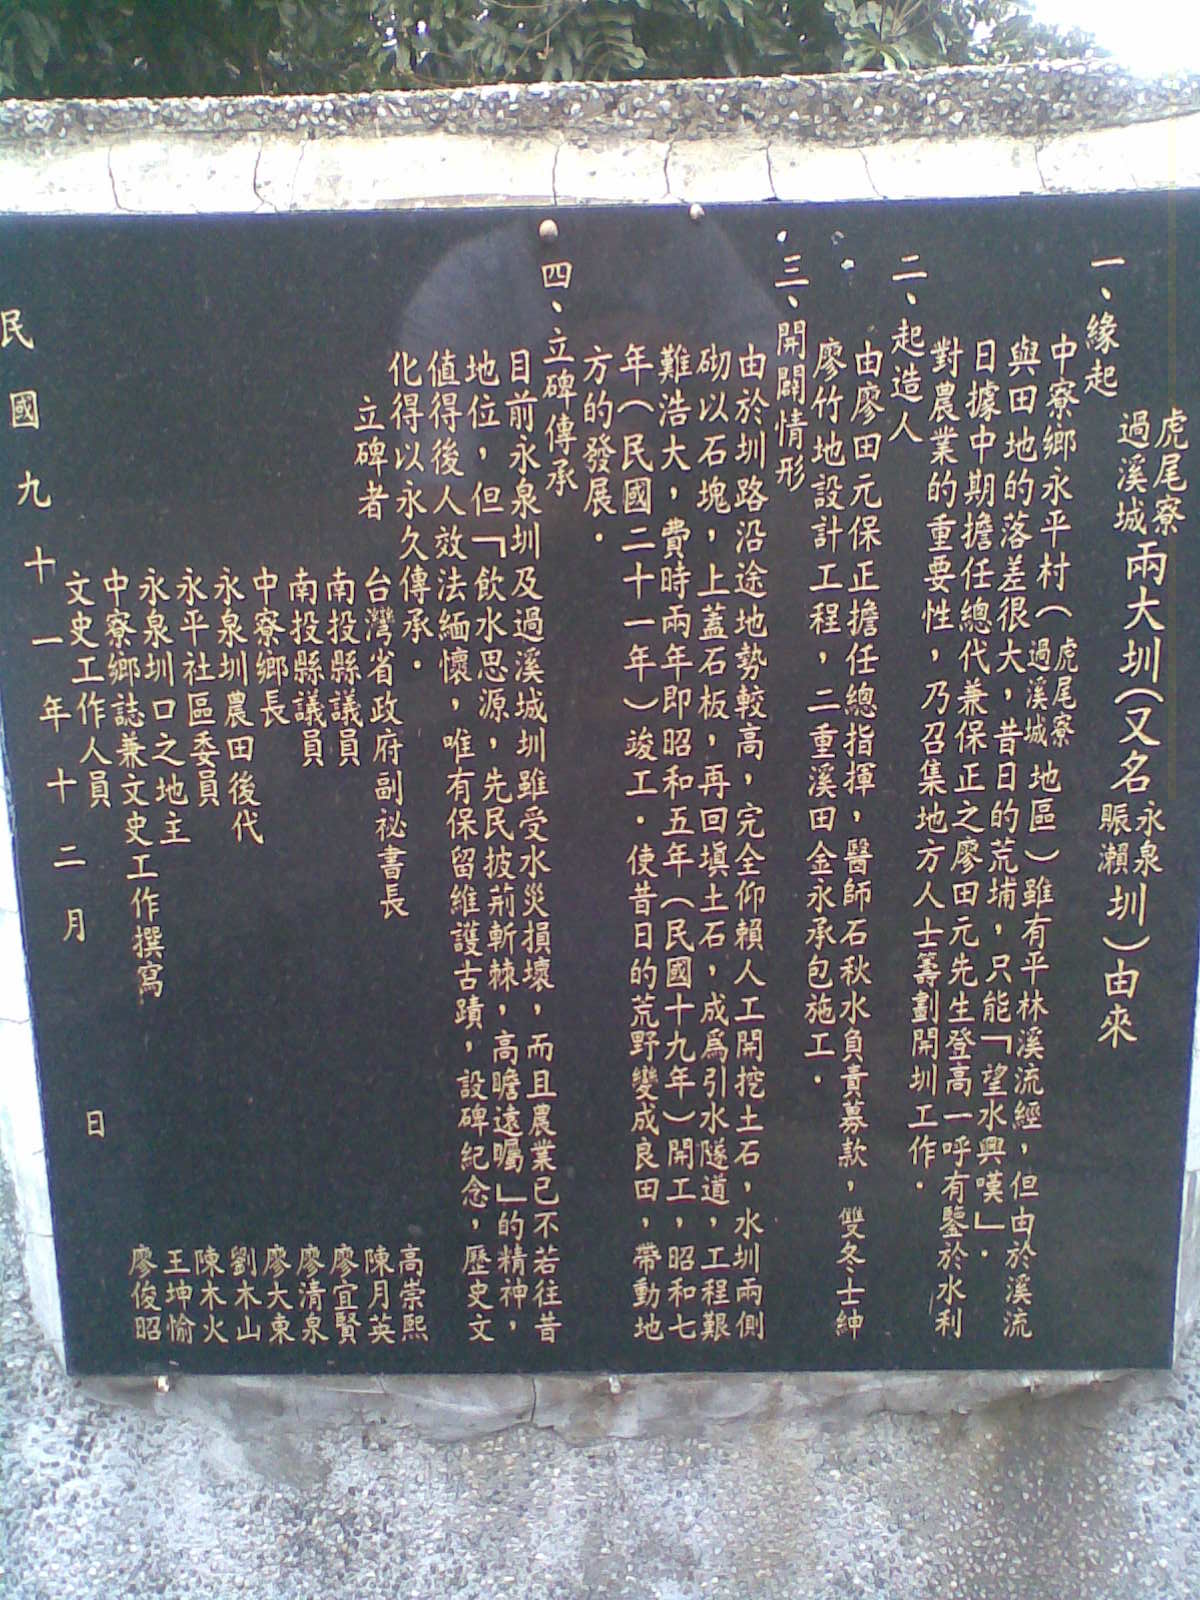 虎尾寮過溪城兩大圳(又名永泉賑瀨圳)由來
一、緣起
中寮鄉永平村(虎尾寮過溪城地區)雖有平林溪流經,但由於溪流
與田地的落差很大,昔日的荒埔,只能「望水興嘆」.
日據中期擔任總代兼保正之廖田元先生登高一呼有鑒於水利
對農業的重要性,乃召集地方人士籌劃開圳工作.
二、起造人
由廖田元保正擔任總指揮,醫師石秋水負責募款,雙冬士紳
廖竹地設計工程,二重溪田金永承包施工.
三、開闢情形
由於圳路沿途地勢較高,完全仰賴人工開挖土石,水圳兩側
砌以石塊,上蓋石板,再回填土石,成為引水隧道,工程艱
難浩大,費時兩年即昭和五年(民國十九年)開工,昭和七
年(民國二十一年)竣工.使昔日的荒野變成良田,帶動地
方的發展.
四、立碑傳承
目前永泉圳及過溪城圳雖受水災損壞,而且農業已不若往昔
地位,但「飲水思源,先民披荊斬棘,高瞻遠矚」的精神,
值得後人效法緬懷,唯有保留維護古蹟,設碑紀念,歷史文
化得以永久傳承.
立碑者 台灣省政府副祕書長 高崇熙
南投縣議員 陳月英
南投縣議員 廖宜賢
中寮鄉長 廖清泉
永泉圳農田後代 廖大東
永平社區委員 劉木山
永泉圳口之地主 陳木火
中寮鄉誌兼文史工作撰寫 王坤愉
文史工作人員 廖俊昭
民國九十一年十二月 日